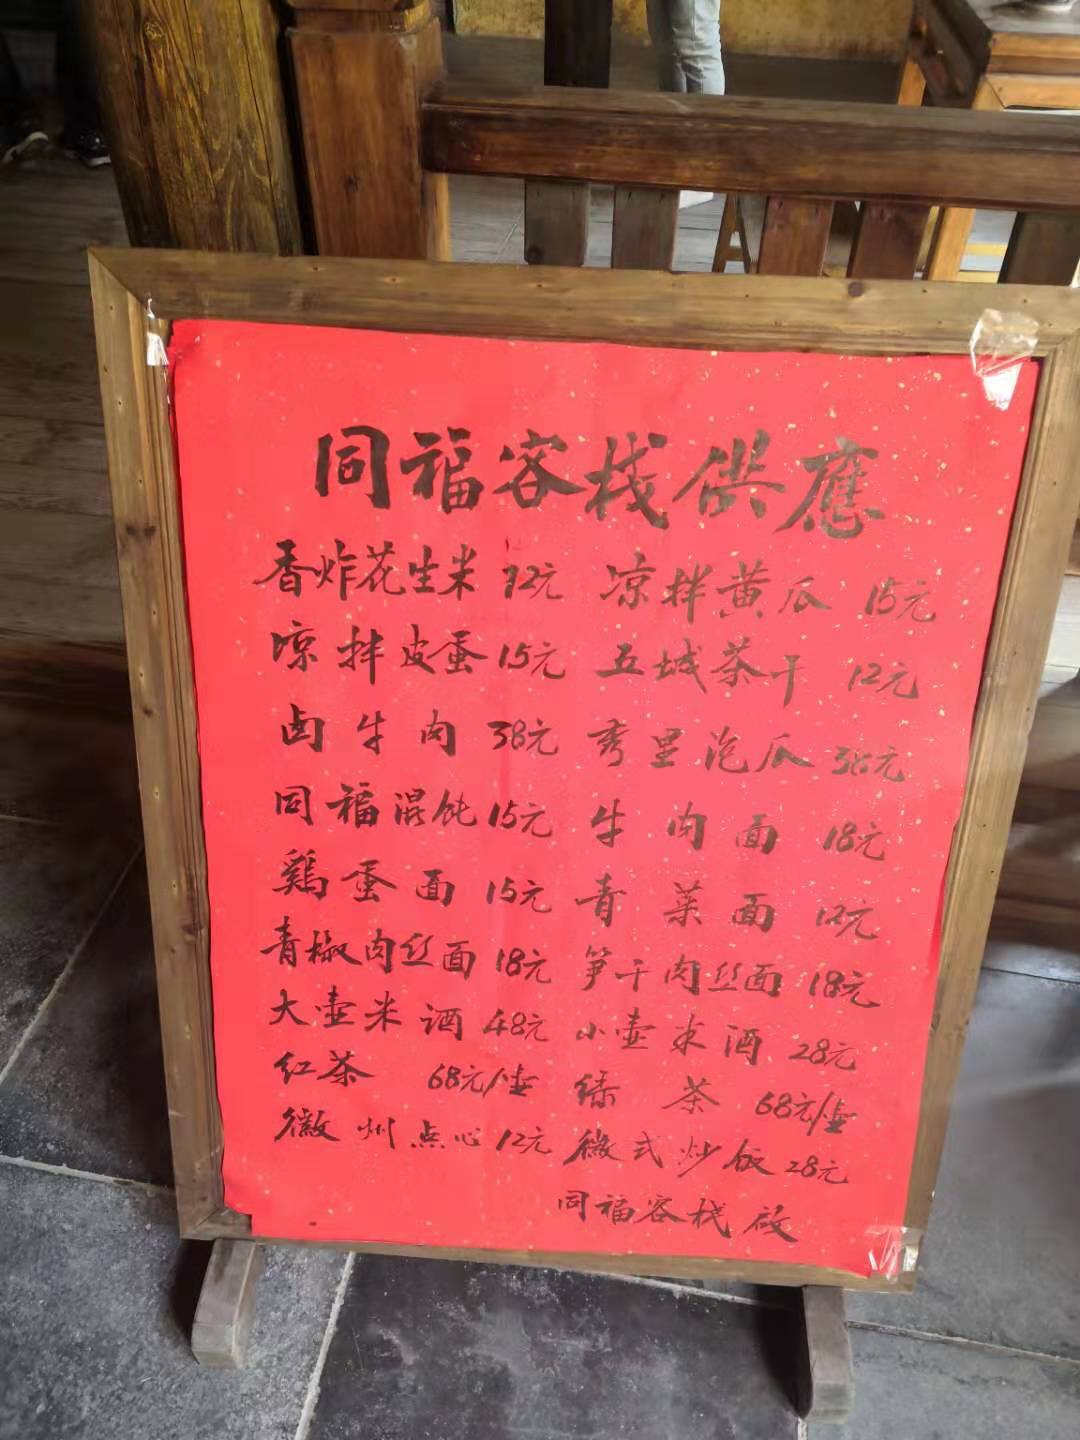 同福客栈供應
香炸花生米 12元 凉拌黄瓜 15元
凉拌皮蛋 15元 五城茶干 12元
卤牛肉 38元 秀里泡瓜 38元
同福混饨 15元 牛肉面 18元
鷄蛋面 15元 青菜面 12元
青椒肉丝面 18元 笋干肉丝面 18元
大壶米酒 48元 小壶米酒 28元
红茶 68元/壶 绿茶 68元/壶
徽州点心 12元 徽式炒饭 28元
同福客栈 启